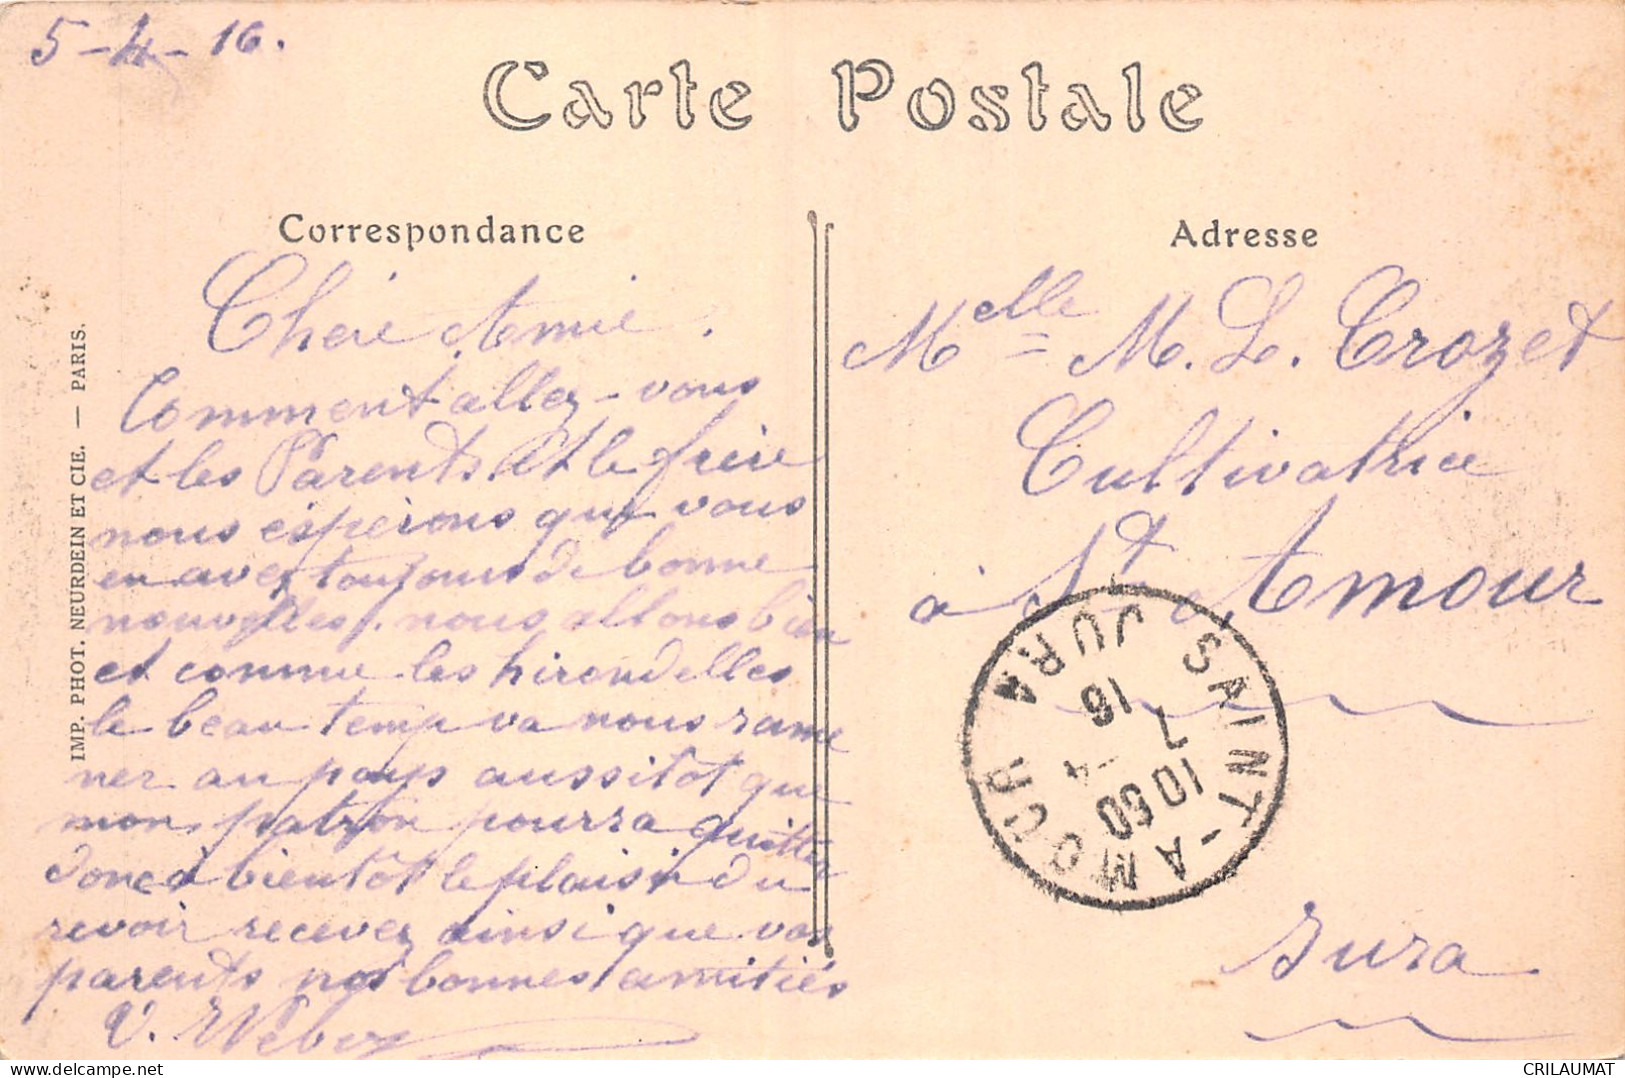 5-4-16.
Carte Postale
Correspondance
Adresse
Chère Amie.
Comment allez-vous
et les Parents. Et le frère
nous espérons que vous
en avez toujours de bonne
nouvelles. nous allons bien
et comme les hirondelles
le beau temp va nous rame
ner au pays aussitôt que
mon patron pourra quitter
donc à bientôt le plaisir du
revoir recevez ainsi que vos
parents nos bonnes amitiés
V. Weber
IMP. PHOT. NEURDEIN ET CIE. — PARIS.
Melle M. L. Crozet
Cultivatrice
à St Amour
Jura
SAINT-AMOUR
JURA
10 50
7 - 4
16
CRILAUMAT